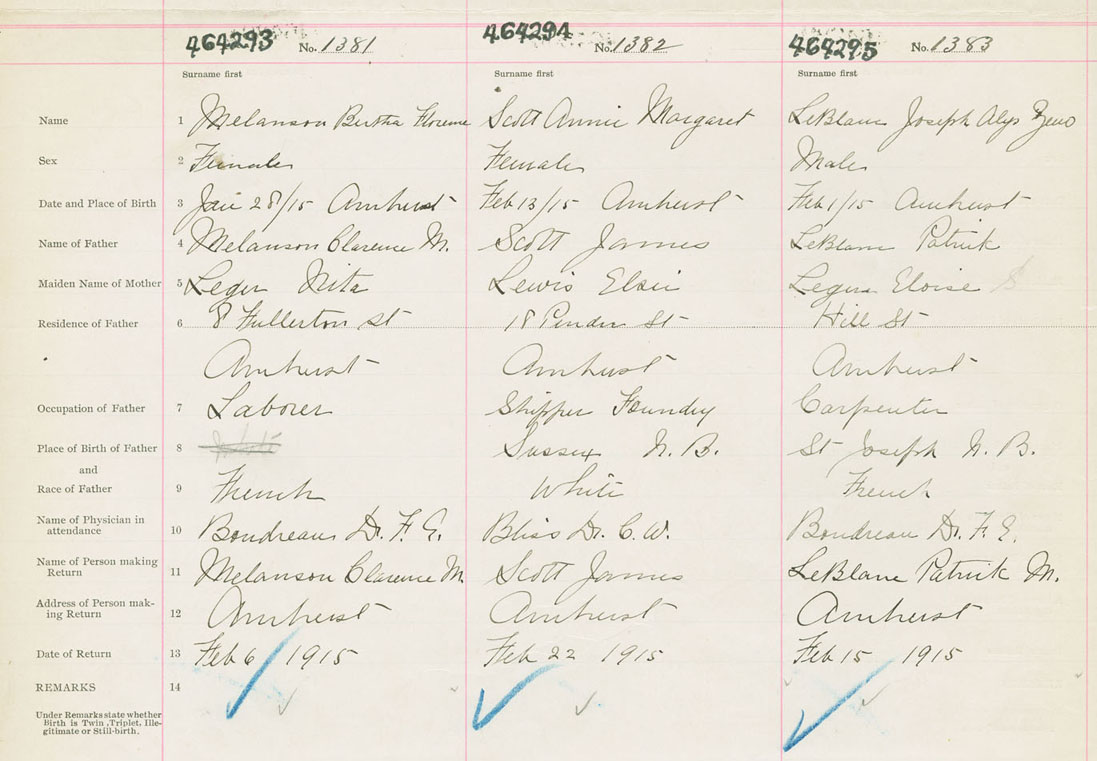 464293 No. 1381 464294 No. 1382 464295 No. 1383
Surname first Surname first Surname first
Name 1 Melanson Bertha Florence Scott Annie Margaret LeBlanc Joseph Alys Zeno
Sex 2 Female Female Male
Date and Place of Birth 3 Jan 28/15 Amherst Feb 13/15 Amherst Feb 1/15 Amherst
Name of Father 4 Melanson Clarence M. Scott James LeBlanc Patrick
Maiden Name of Mother 5 Leger Nita Lewis Elsie Legere Eloise
Residence of Father 6 8 Fullerton St 18 Pender St Hill St
Amherst Amherst Amherst
Occupation of Father 7 Laborer Shipper Foundry Carpenter
Place of Birth of Father 8 Sussex N.B. St Joseph N.B.
and
Race of Father 9 French White French
Name of Physician in
attendance 10 Boudreau Dr. F. E. Bliss Dr. C. W. Boudreau Dr. F. E.
Name of Person making
Return 11 Melanson Clarence M Scott James LeBlanc Patrick M.
Address of Person mak-
ing Return 12 Amherst Amherst Amherst
Date of Return 13 Feb 6 1915 Feb 22 1915 Feb 15 1915
REMARKS 14
Under Remarks state whether
Birth is Twin, Triplet, Ille-
gitimate or Still-birth.